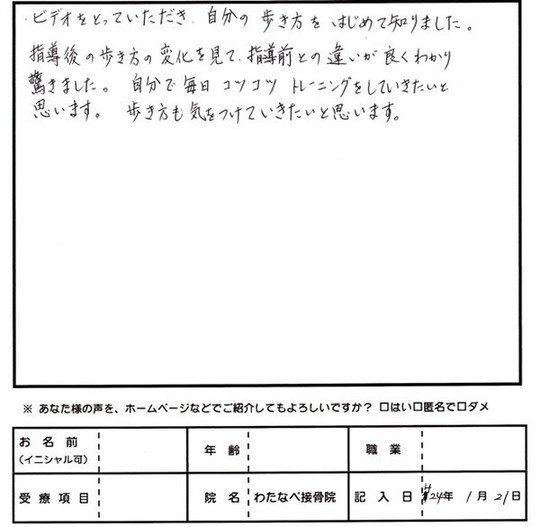 ・ビデオをとっていただき、自分の歩き方をはじめて知りました。
指導後の歩き方の変化を見て、指導前との違いが良くわかり
驚きました。 自分で毎日コツコツトレーニングをしていきたいと
思います。 歩き方も気をつけていきたいと思います。
※ あなた様の声を、ホームページなどでご紹介してもよろしいですか? 口はい口匿名で口ダメ
お名前
(イニシャル可)
年齢
職業
受療項目
院名 わたなべ接骨院
記入日 H24年 1月21日